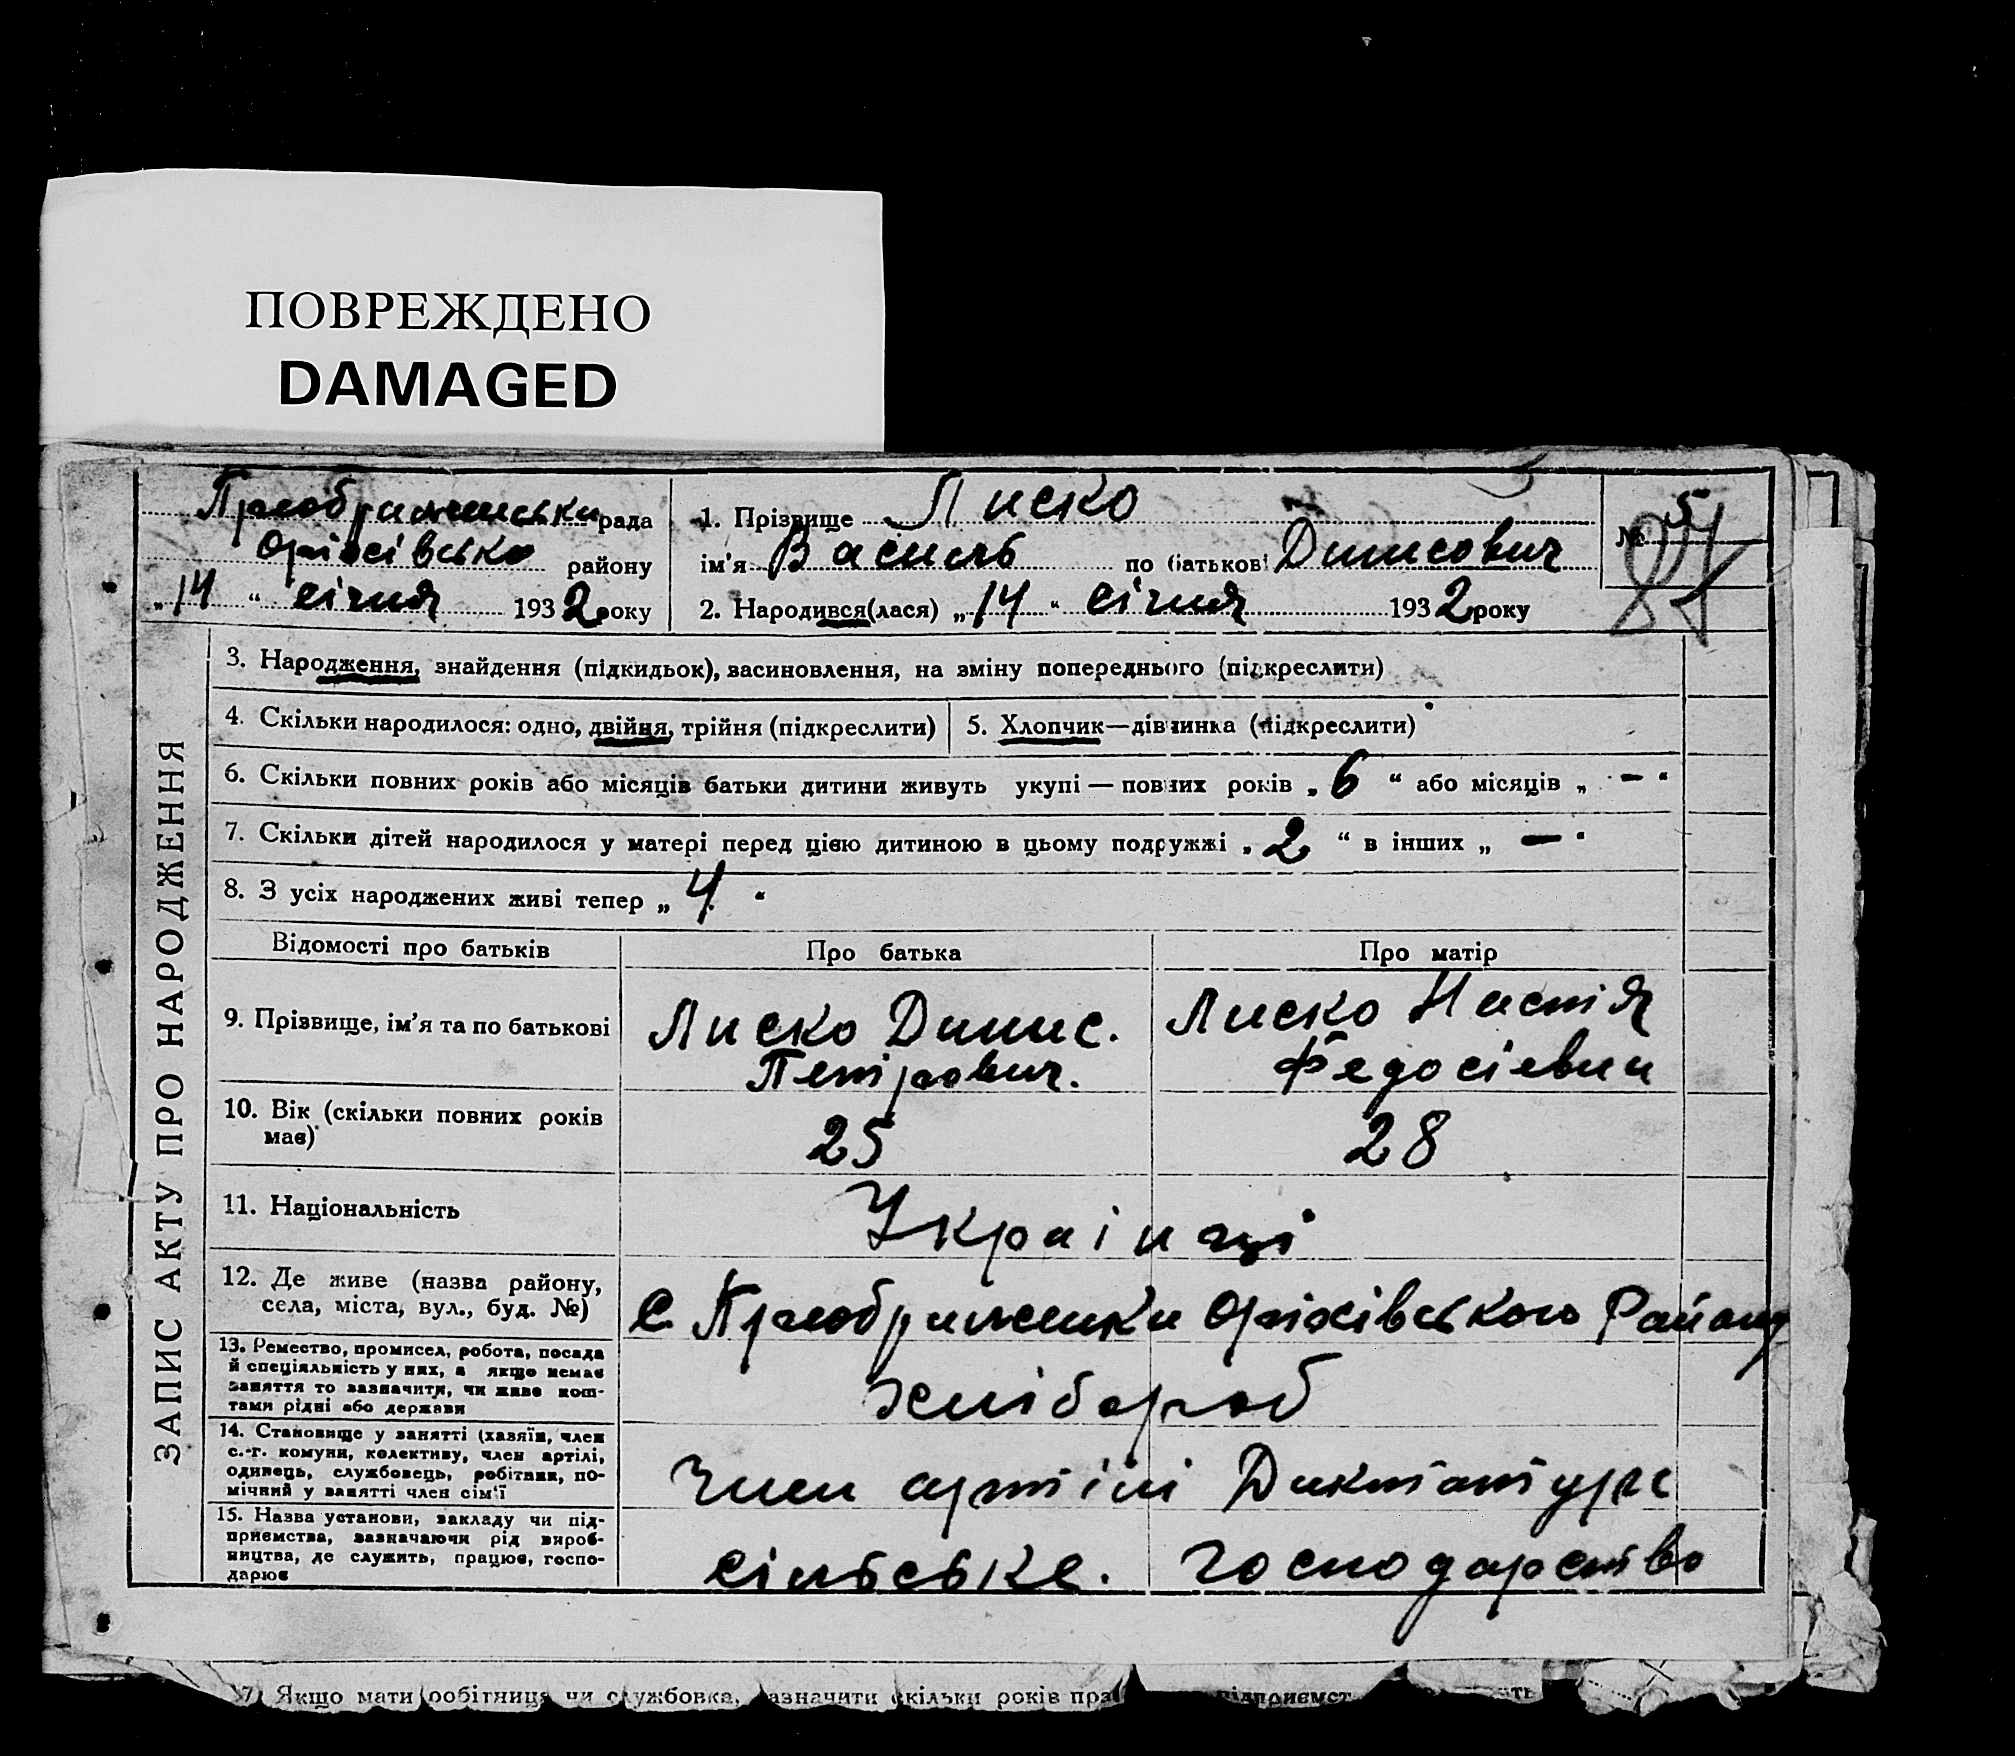 ПОВРЕЖДЕНО
DAMAGED
Преображенська рада
Оріхівсько району
„14“ січня 1932 року
1. Прізвище Лиско
ім'я Василь по батькові Динисович
2. Народився(лася) „14“ січня 1932 року
№ 5
ЗАПИС АКТУ ПРО НАРОДЖЕННЯ
3. Народження, знайдення (підкидьок), васиновлення, на зміну попереднього (підкреслити)
4. Скільки народилося: одно, двійня, трійня (підкреслити)
5. Хлопчик—дівчинка (підкреслити)
6. Скільки повних років або місяців батьки дитини живуть укупі — повних років „6“ або місяців „—“
7. Скільки дітей народилося у матері перед цією дитиною в цьому подружжі „2“ в інших „—“
8. З усіх народжених живі тепер „4“
Відомості про батьків Про батька Про матір
9. Прізвище, ім'я та по батькові
Лиско Динис.
Петрович.
Лиско Настія
Федосієвна
10. Вік (скільки повних років
має)
25 28
11. Національність
Українці
12. Де живе (назва району,
села, міста, вул., буд. №)
с. Преображенка Оріхівського Району
13. Ремество, промисел, робота, посада
й спеціяльність у них, а якщо немає
заняття то зазначити, чи живе кош-
тами рідні або держави
хлібороб
14. Становище у занятті (хазяїн, член
с.-г. комуни, колективу, член артілі,
одинець, службовець, робітник, по-
мічний у занятті член сім'ї
член артілі Диктатура
15. Назва установи, закладу чи під-
приємства, зазначаючи рід вироб-
ництва, де служить, працює, госпо-
дарює
сільське. господарство
7) Якщо мати робітниця чи службовка, зазначити скільки років пра